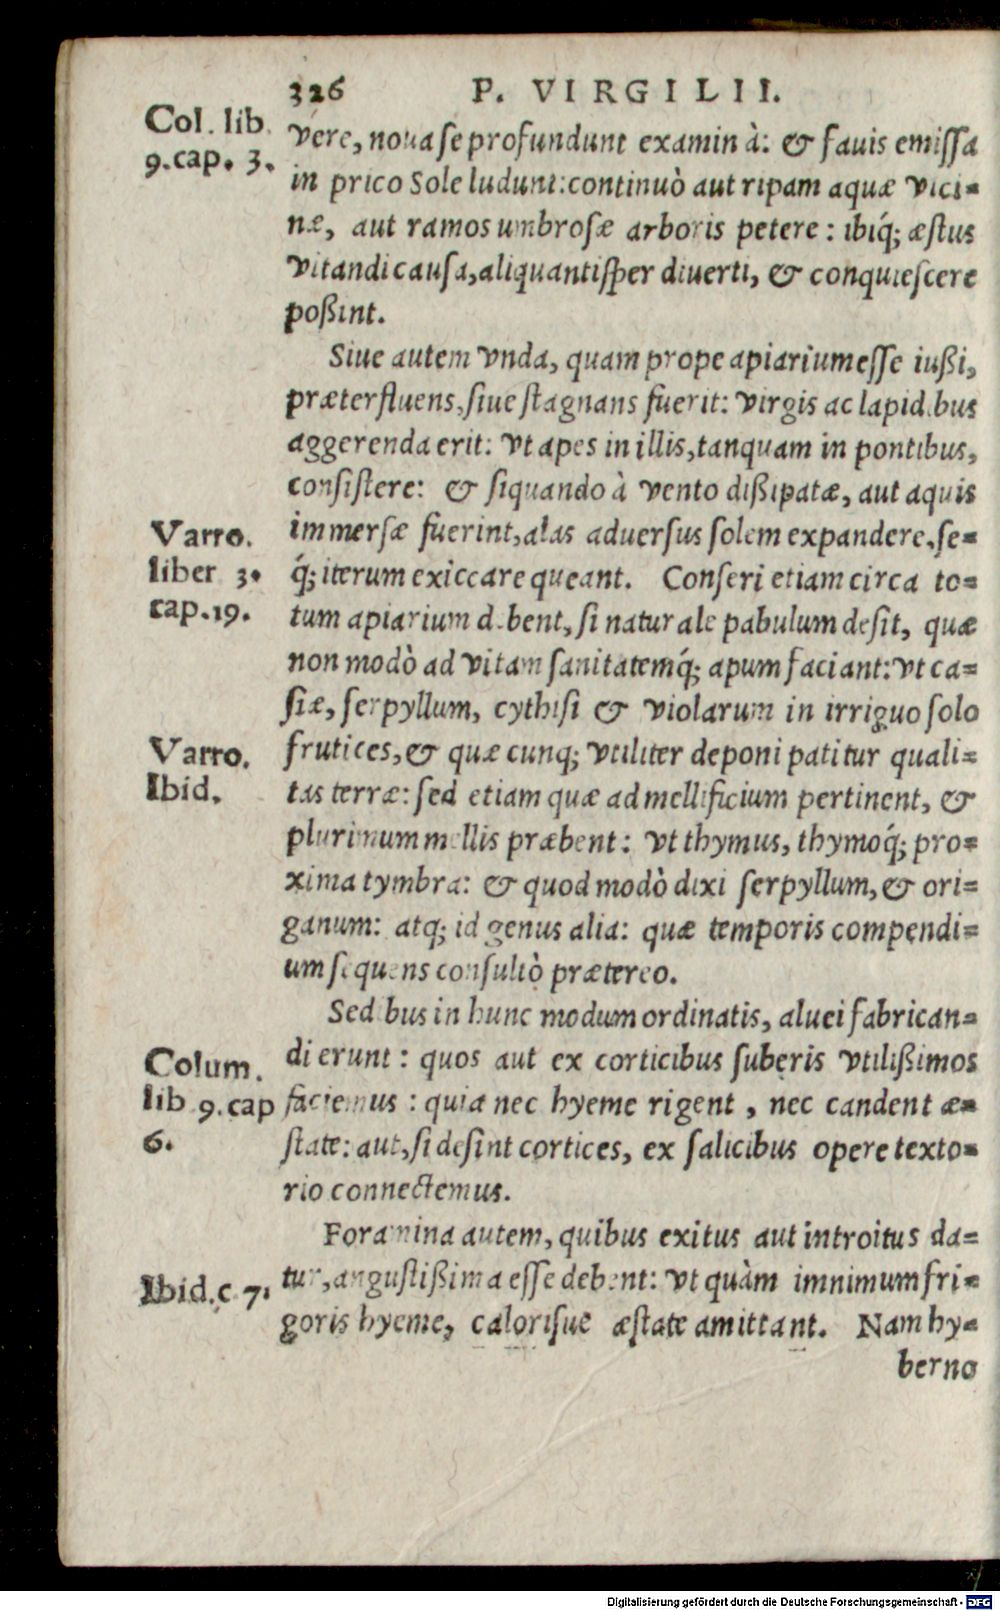 326 P. VIRGILII.
Col. lib.
9. cap. 3.
vere, noua se profundunt examinà: & fauis emissa
in prico Sole ludunt: continuò aut ripam aquæ vici=
næ, aut ramos umbrosæ arboris petere: ibiq́; æstus
vitandi causa, aliquantisper diuerti, & conquiescere
poßint.
Siue autem vnda, quam prope apiarium esse iußi,
præterfluens, siue stagnans fuerit: virgis ac lapid bus
aggerenda erit: vt apes in illis, tanquam in pontibus,
consistere: & siquando à vento dißipatæ, aut aquis
Varro.
liber 3.
cap. 19.
immersæ fuerint, alas aduersus solem expandere, se=
q́; iterum exiccare queant. Conseri etiam circa to=
tum apiarium d.bent, si naturale pabulum desit, quæ
non modò ad vitam sanitatemq́; apum faciant: vt ca=
siæ, serpyllum, cythisi & violarum in irriguo solo
Varro.
Ibid.
frutices, & quæcunq; vtiliter deponi patitur quali=
tas terræ: sed etiam quæ ad mellificium pertinent, &
plurimum mellis præbent: vt thymus, thymoq́; pro=
xima tymbra: & quod modò dixi serpyllum, & ori=
ganum: atq; id genus alia: quæ temporis compendi=
um sequens consultò prætereo.
Sed bus in hunc modum ordinatis, aluei fabrican=
Colum.
lib 9. cap
6.
di erunt: quos aut ex corticibus suberis vtilißimos
faciemus: quia nec hyeme rigent, nec candent æ=
state: aut, si desint cortices, ex salicibus opere texto=
rio connectemus.
Foramina autem, quibus exitus aut introitus da=
Ibid. c 7.
tur, angustißima esse debent: vt quàm imnimum fri=
goris hyeme, calorisue æstate amittant. Nam hy=
berno
Digitalisierung gefördert durch die Deutsche Forschungsgemeinschaft - DFG